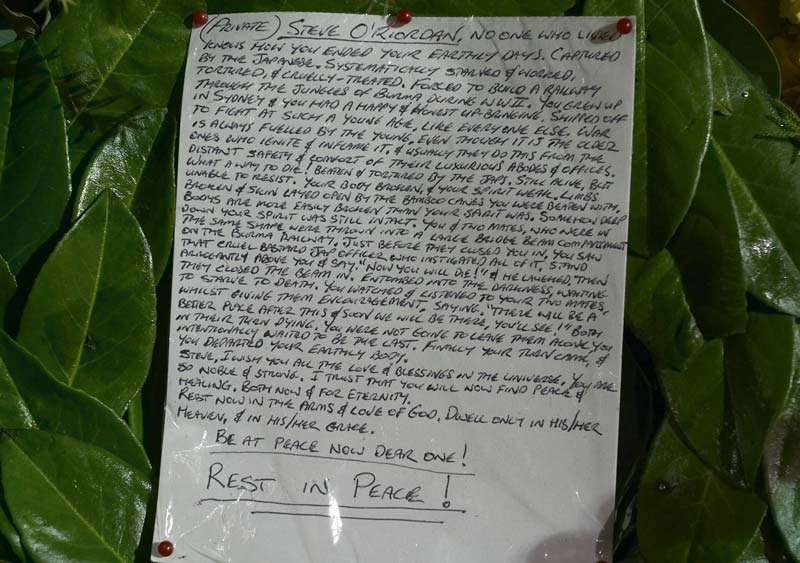 (PRIVATE) STEVE O'RIORDAN, NO ONE WHO LIVED
KNOWS HOW YOU ENDED YOUR EARTHLY DAYS. CAPTURED
BY THE JAPANESE. SYSTEMATICALLY STARVED & WORKED,
TORTURED, & CRUELLY-TREATED. FORCED TO BUILD A RAILWAY
THROUGH THE JUNGLES OF BURMA DURING W.W.II. YOU GREW UP
IN SYDNEY & YOU HAD A HAPPY & HONEST UP-BRINGING. SHIPPED OFF
TO FIGHT AT SUCH A YOUNG AGE, LIKE EVERYONE ELSE. WAR
IS ALWAYS FUELLED BY THE YOUNG, EVEN THOUGH IT IS THE OLDER
ONES WHO IGNITE & INFLAME IT, & USUALLY THEY DO THIS FROM THE
DISTANT SAFETY & COMFORT OF THEIR LUXURIOUS ABODES & OFFICES.
WHAT A WAY TO DIE! BEATEN & TORTURED BY THE JAPS. STILL ALIVE, BUT
UNABLE TO RESIST. YOUR BODY BROKEN, & YOUR SPIRIT WEAK. LIMBS
BROKEN & SKIN LAYED OPEN BY THE BAMBOO CANES YOU WERE BEATEN WITH.
BODYS ARE MORE EASILY BROKEN THAN YOUR SPIRIT WAS. SOMEHOW DEEP
DOWN YOUR SPIRIT WAS STILL INTACT. YOU & TWO MATES, WHO WERE IN
THE SAME SHAPE WERE THROWN INTO A LARGE BRIDGE BEAM COMPARTMENT
ON THE BURMA RAILWAY. JUST BEFORE THEY CLOSED YOU IN, YOU SAW
THAT CRUEL BASTARD JAP OFFICER WHO INSTIGATED ALL OF IT, STAND
ARROGANTLY ABOVE YOU & SAY "NOW YOU WILL DIE!" & HE LAUGHED, THEN
THEY CLOSED THE BEAM IN. ENTOMBED INTO THE DARKNESS, WAITING
TO STARVE TO DEATH. YOU WATCHED & LISTENED TO YOUR TWO MATES,
WHILST GIVING THEM ENCOURAGEMENT, SAYING, "THERE WILL BE A
BETTER PLACE AFTER THIS & SOON WE WILL BE THERE, YOU'LL SEE!" BOTH
IN THEIR TURN DYING. YOU WERE NOT GOING TO LEAVE THEM ALONE, YOU
INTENTIONALLY WAITED TO BE THE LAST. FINALLY YOUR TURN CAME, &
YOU DEPARTED YOUR EARTHLY BODY.
STEVE, I WISH YOU ALL THE LOVE & BLESSINGS IN THE UNIVERSE. YOU ARE
SO NOBLE & STRONG. I TRUST THAT YOU WILL NOW FIND PEACE &
HEALING. BOTH NOW & FOR ETERNITY.
REST NOW IN THE ARMS & LOVE OF GOD. DWELL ONLY IN HIS/HER
HEAVEN, & IN HIS/HER GRACE.
BE AT PEACE NOW DEAR ONE!
REST IN PEACE!